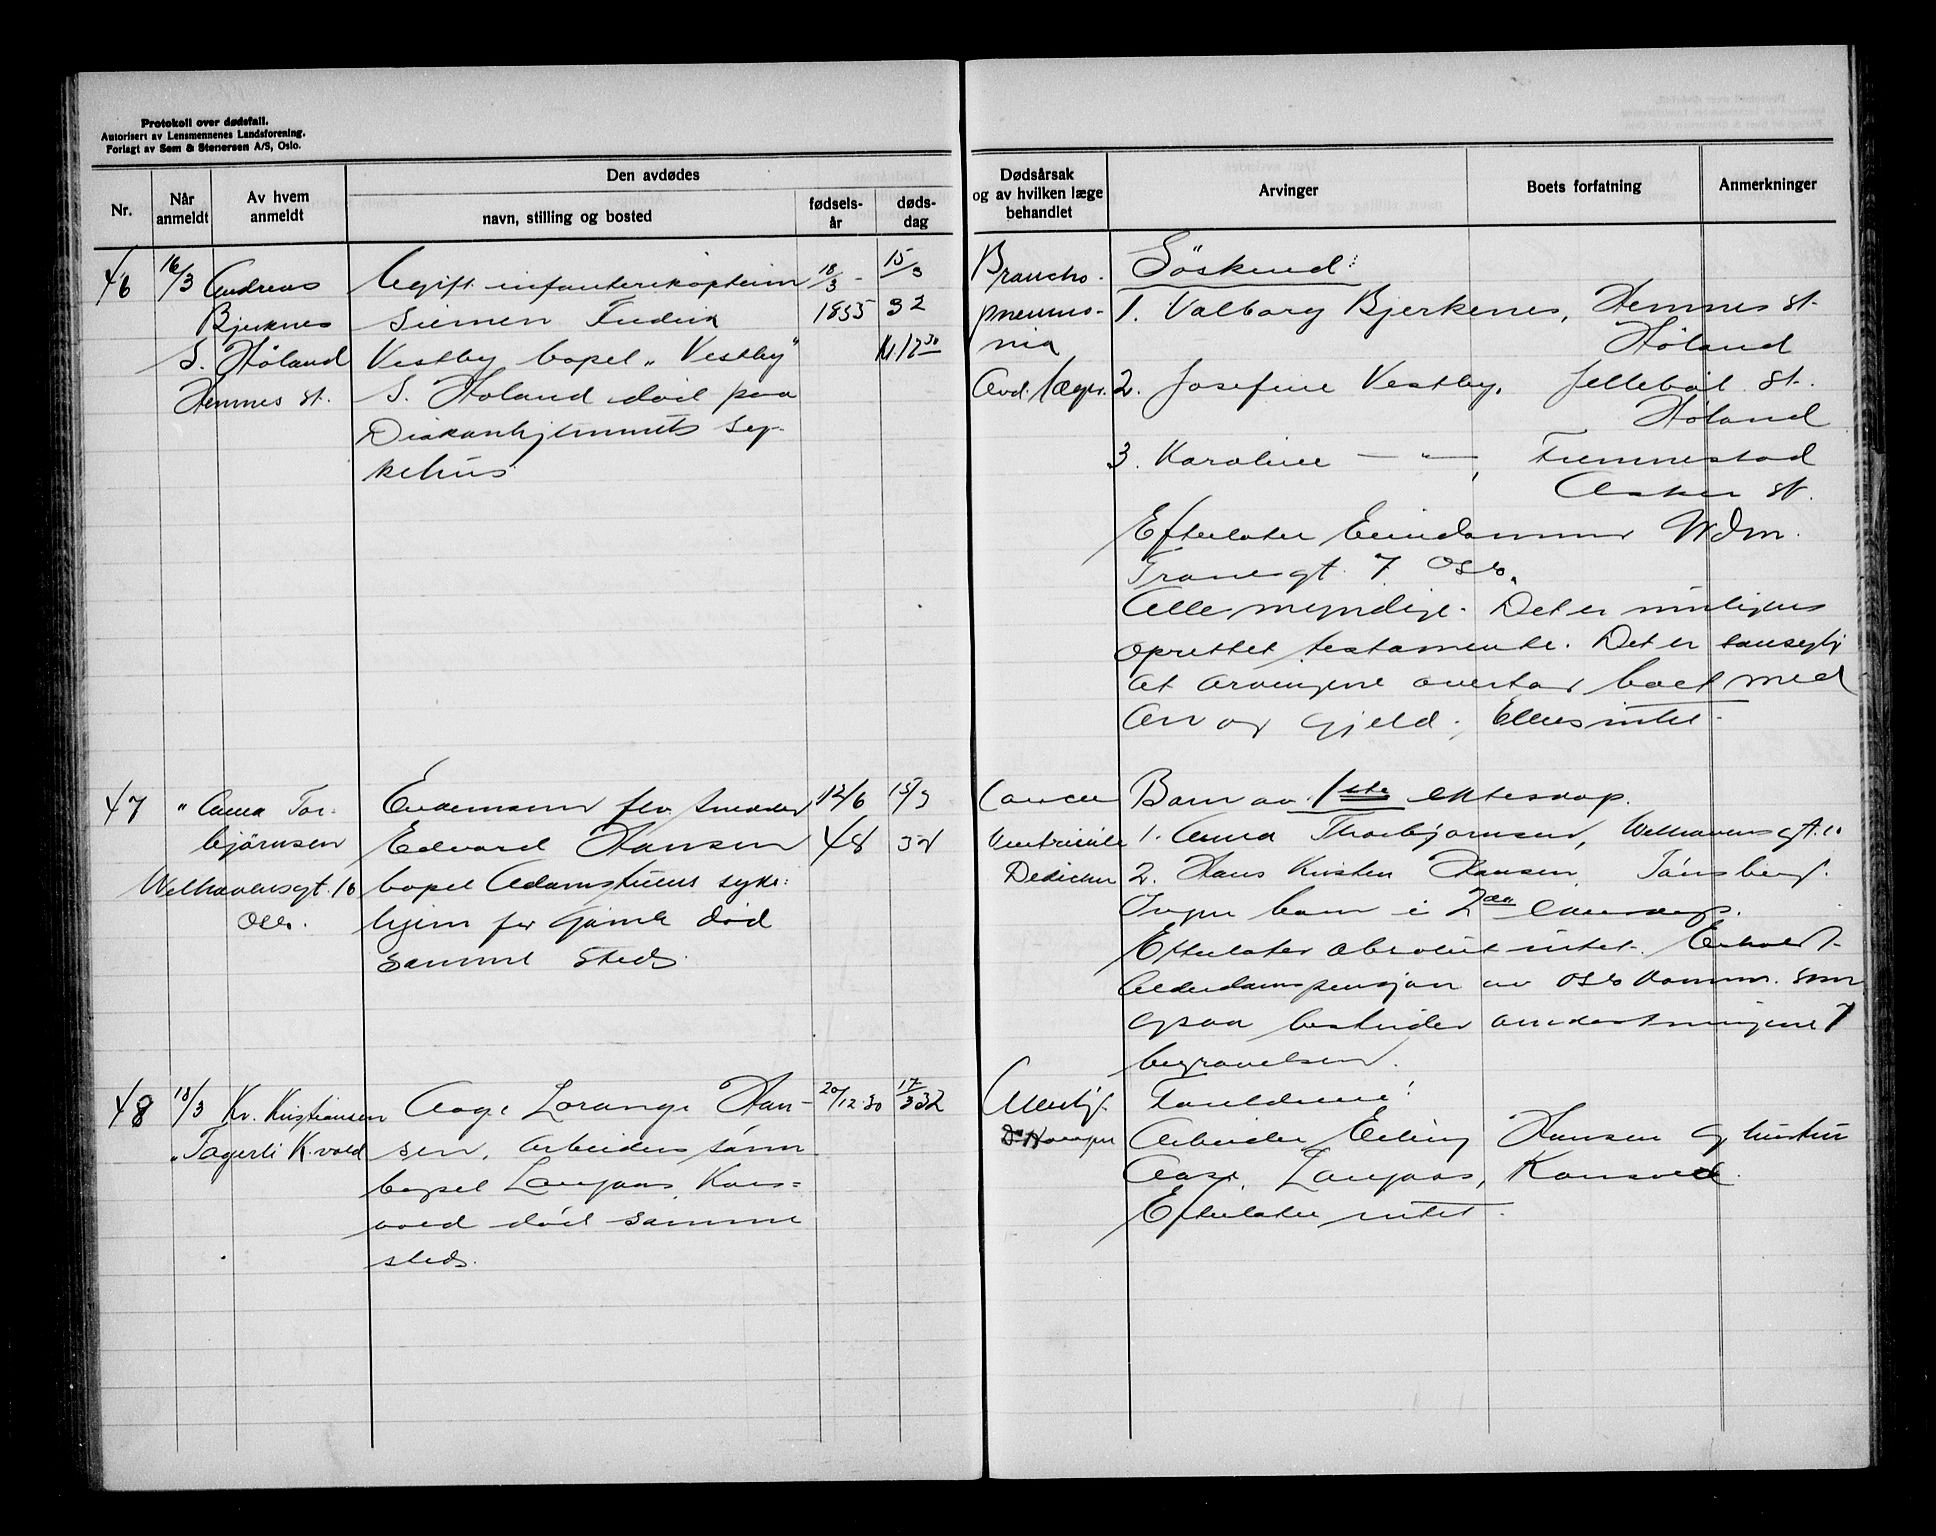 Protokoll over dødsfall.
Autorisert av Lensmennenes Landsforening.
Forlagt av Sem & Stenersen A/S, Oslo.
Nr.
Når anmeldt
Av hvem anmeldt
Den avdødes
navn, stilling og bosted
fødsels-år
døds-dag
Dødsårsak og av hvilken læge behandlet
Arvinger
Boets forfatning
Anmerkninger
46
16/3
Andreas
Bjerknes
S. Høland
Hemnes st.
Ugift infanterikaptein
Simen Fredrik
Vestby bopel „Vestby"
S. Høland død paa
Diakonhjemmets sy-
kehus
18/3 -
1855
15/3
32
kl. 12 30
Broncho-
pneumo-
nia
Avd. læge.
Söskend:
1. Valborg Bjerkenes, Hemnes st.
Høland
2. Josefine Vestby, Jellebøl st.
Høland
3. Karoline — " —, Fremmestad
Asker st.
Efterlater Eiendommer
7 Oslo.
Alle myndige. Det er muligens
oprettet testamente. Det er
at arvingene overtar boet med
arv og gjeld. Ellers intet.
47
" Anna Tor-
bjørnsen
Welhavensgt. 10
Oslo.
Enkemann fhv. snekker
Edvard Hansen
bopel Adamstuens syke-
hjem for gamle død
samme steds.
12/6
48
15/3
32
Cancer
Ventriculi
Dedichen
Barn av 1ste ekteskap.
1. Anna Thorbjørnsen, Welhavensgt. 10
2. Hans Kristen Hansen, Tønsberg.
Ingen barn i 2det ekteskap.
Efterlater absolut intet. Erholdt
alderdomspensjon av Oslo komm. som
ogsaa bestrider omkostningene
begravelsen.
48
18/3
Kr. Kristiansen
„Fagerli K.vold
Aage Lorange Han-
sen, arbeiders sønn
bopel Langaas, Kons-
vold død samme
steds.
20/12.30
17/3 32
Arbeider Erling Hansen og hustru
Aase, Langaas, Konsvold.
Efterlater intet.
Foreldrene: